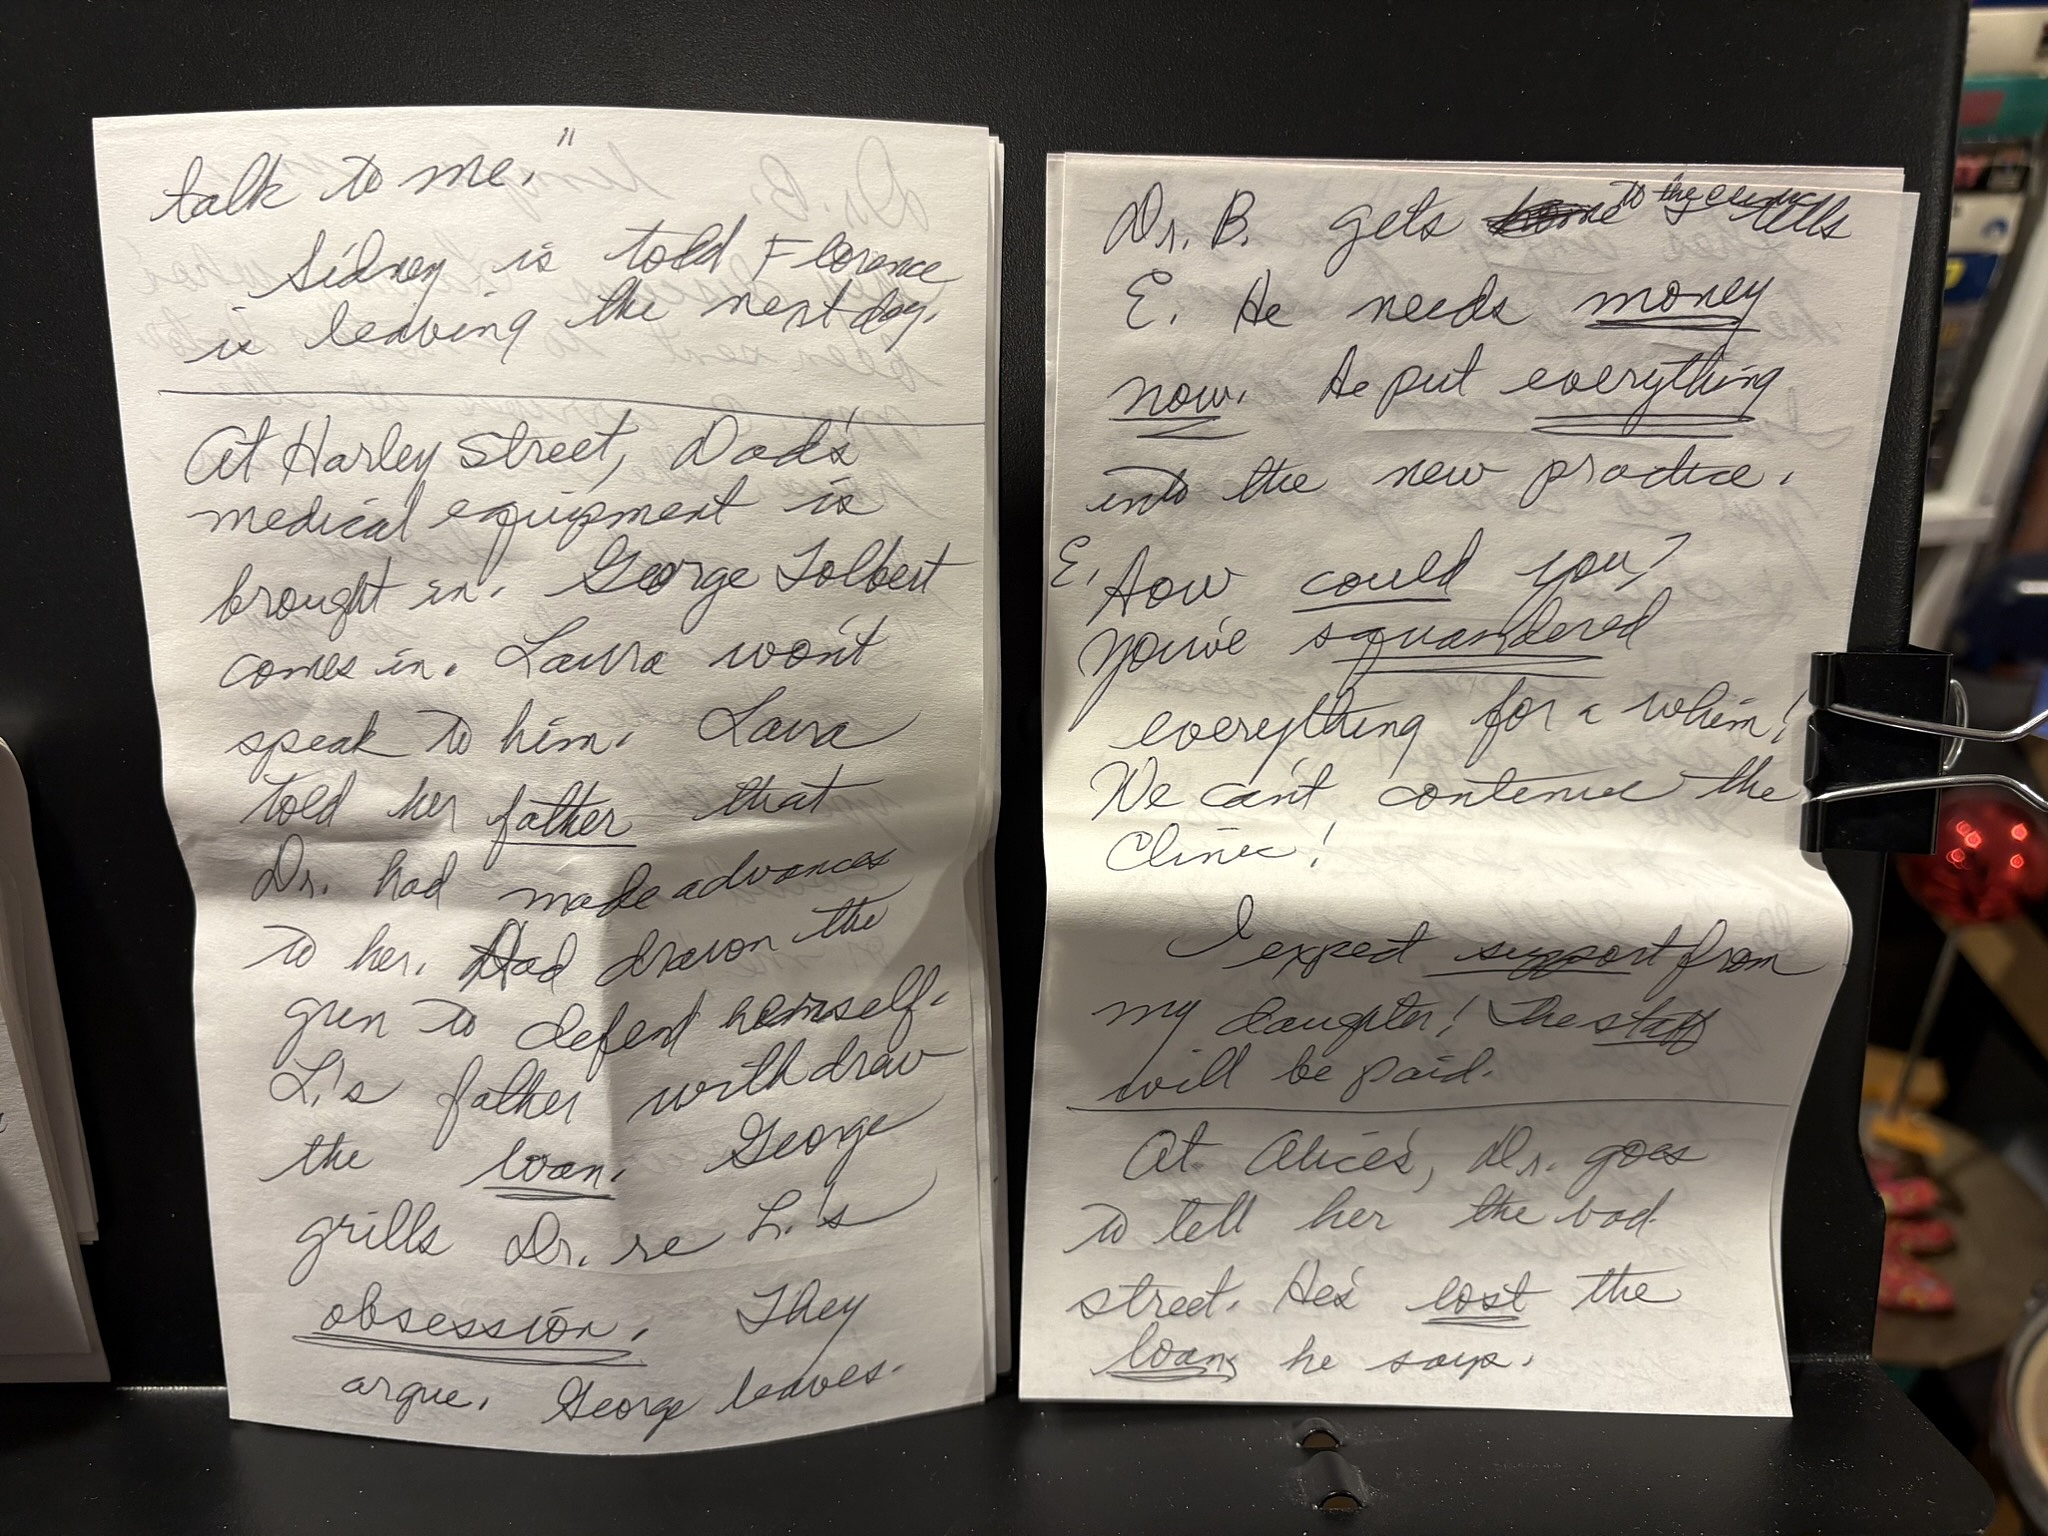 talk to me."
Sidney is told Florence
is leaving the next day.
At Harley Street, Dad's
medical equipment is
brought in. George Tolbert
comes in. Laura won't
speak to him. Laura
told her father that
Dr. had made advances
to her. Had drawn the
gun to defend herself.
L.'s father withdrew
the loan. George
grills Dr. re L.'s
obsession. They
argue. George leaves.
Dr. B. gets to the clinic tells
E. He needs money
now. He put everything
into the new practice.
E. How could you?
You've squandered
everything for a whim!
We can't continue the
Clinic!
I expect support from
my daughter! The staff
will be paid.
At Alice's, Dr. goes
to tell her the bad
street. He's lost the
loan, he says.